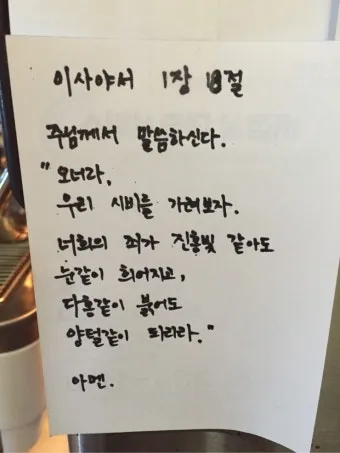 이사야서 1장 18절
주님께서 말씀하신다.
"오너라,
우리 시비를 가려보자.
너희의 죄가 진홍빛 같아도
눈같이 희어지고,
다홍같이 붉어도
양털같이 되리라."
아멘.